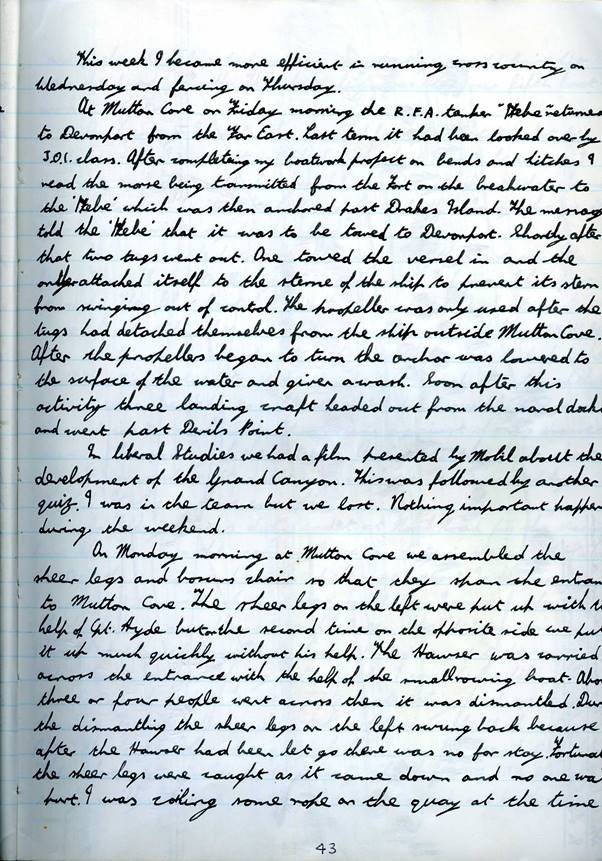 This week I became more efficient in running cross country on
Wednesday and fencing on Thursday.
At Mutton Cove on Friday morning the R.F.A. tanker "Hebe" returned
to Devonport from the Far East. Last term it had been looked over by
J.O.1. class. After completeing my boatwork project on bends and hitches I
read the morse being transmitted from the Fort on the breakwater to
the 'Hebe' which was then anchored past Drakes Island. The messag
told the 'Hebe' that it was to be towed to Devonport. Shortly after
that two tugs went out. One towed the vessel in and the
other attached itself to the sterne of the ship to prevent its stern
from swinging out of control. The propeller was only used after the
tugs had detached themselves from the ship outside Mutton Cove.
After the propellers began to turn the anchor was lowered to
the surface of the water and given a wash. Soon after this
activity three landing craft headed out from the naval dock
and went past Devils Point.
In liberal Studies we had a film presented by Mobil about the
development of the Grand Canyon. This was followed by another
quiz. I was in the team but we lost. Nothing important happen
during the weekend.
On Monday morning at Mutton Cove we assembled the
sheer legs and bosuns chair so that they span the entran
to Mutton Cove. The sheer legs on the left were put up with t
help of Cpt. Hyde but on the second time on the opposite side we put
it up much quickly without his help. The Hawser was carried
across the entrance with the help of the small rowing boat. Abo
three or four people went across then it was dismantled. Dur
the dismantling the sheer legs on the left swung back because
after the Hawser had been let go there was no for stay. Fortunat
the sheer legs were caught as it came down and no one wa
hurt. I was coiling some rope on the quay at the time
43